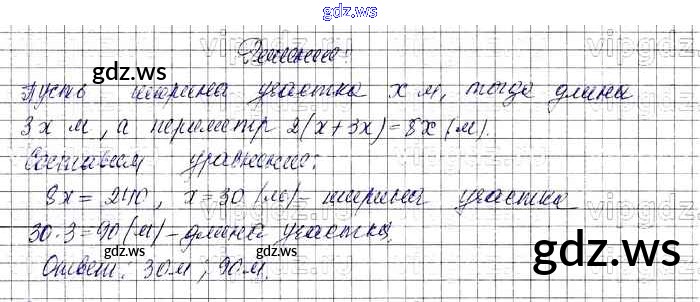 gdz.ws
Решение:
Пусть ширина участка x м, тогда длина
3x м, а периметр 2(x+3x)=8x (м).
Составим уравнение:
8x = 240, x=30 (м) - ширина участка
30·3=90 (м) - длина участка.
Ответ: 30м; 90м.
gdz.ws
gdz.ws
gdz.ws
gdz.ws